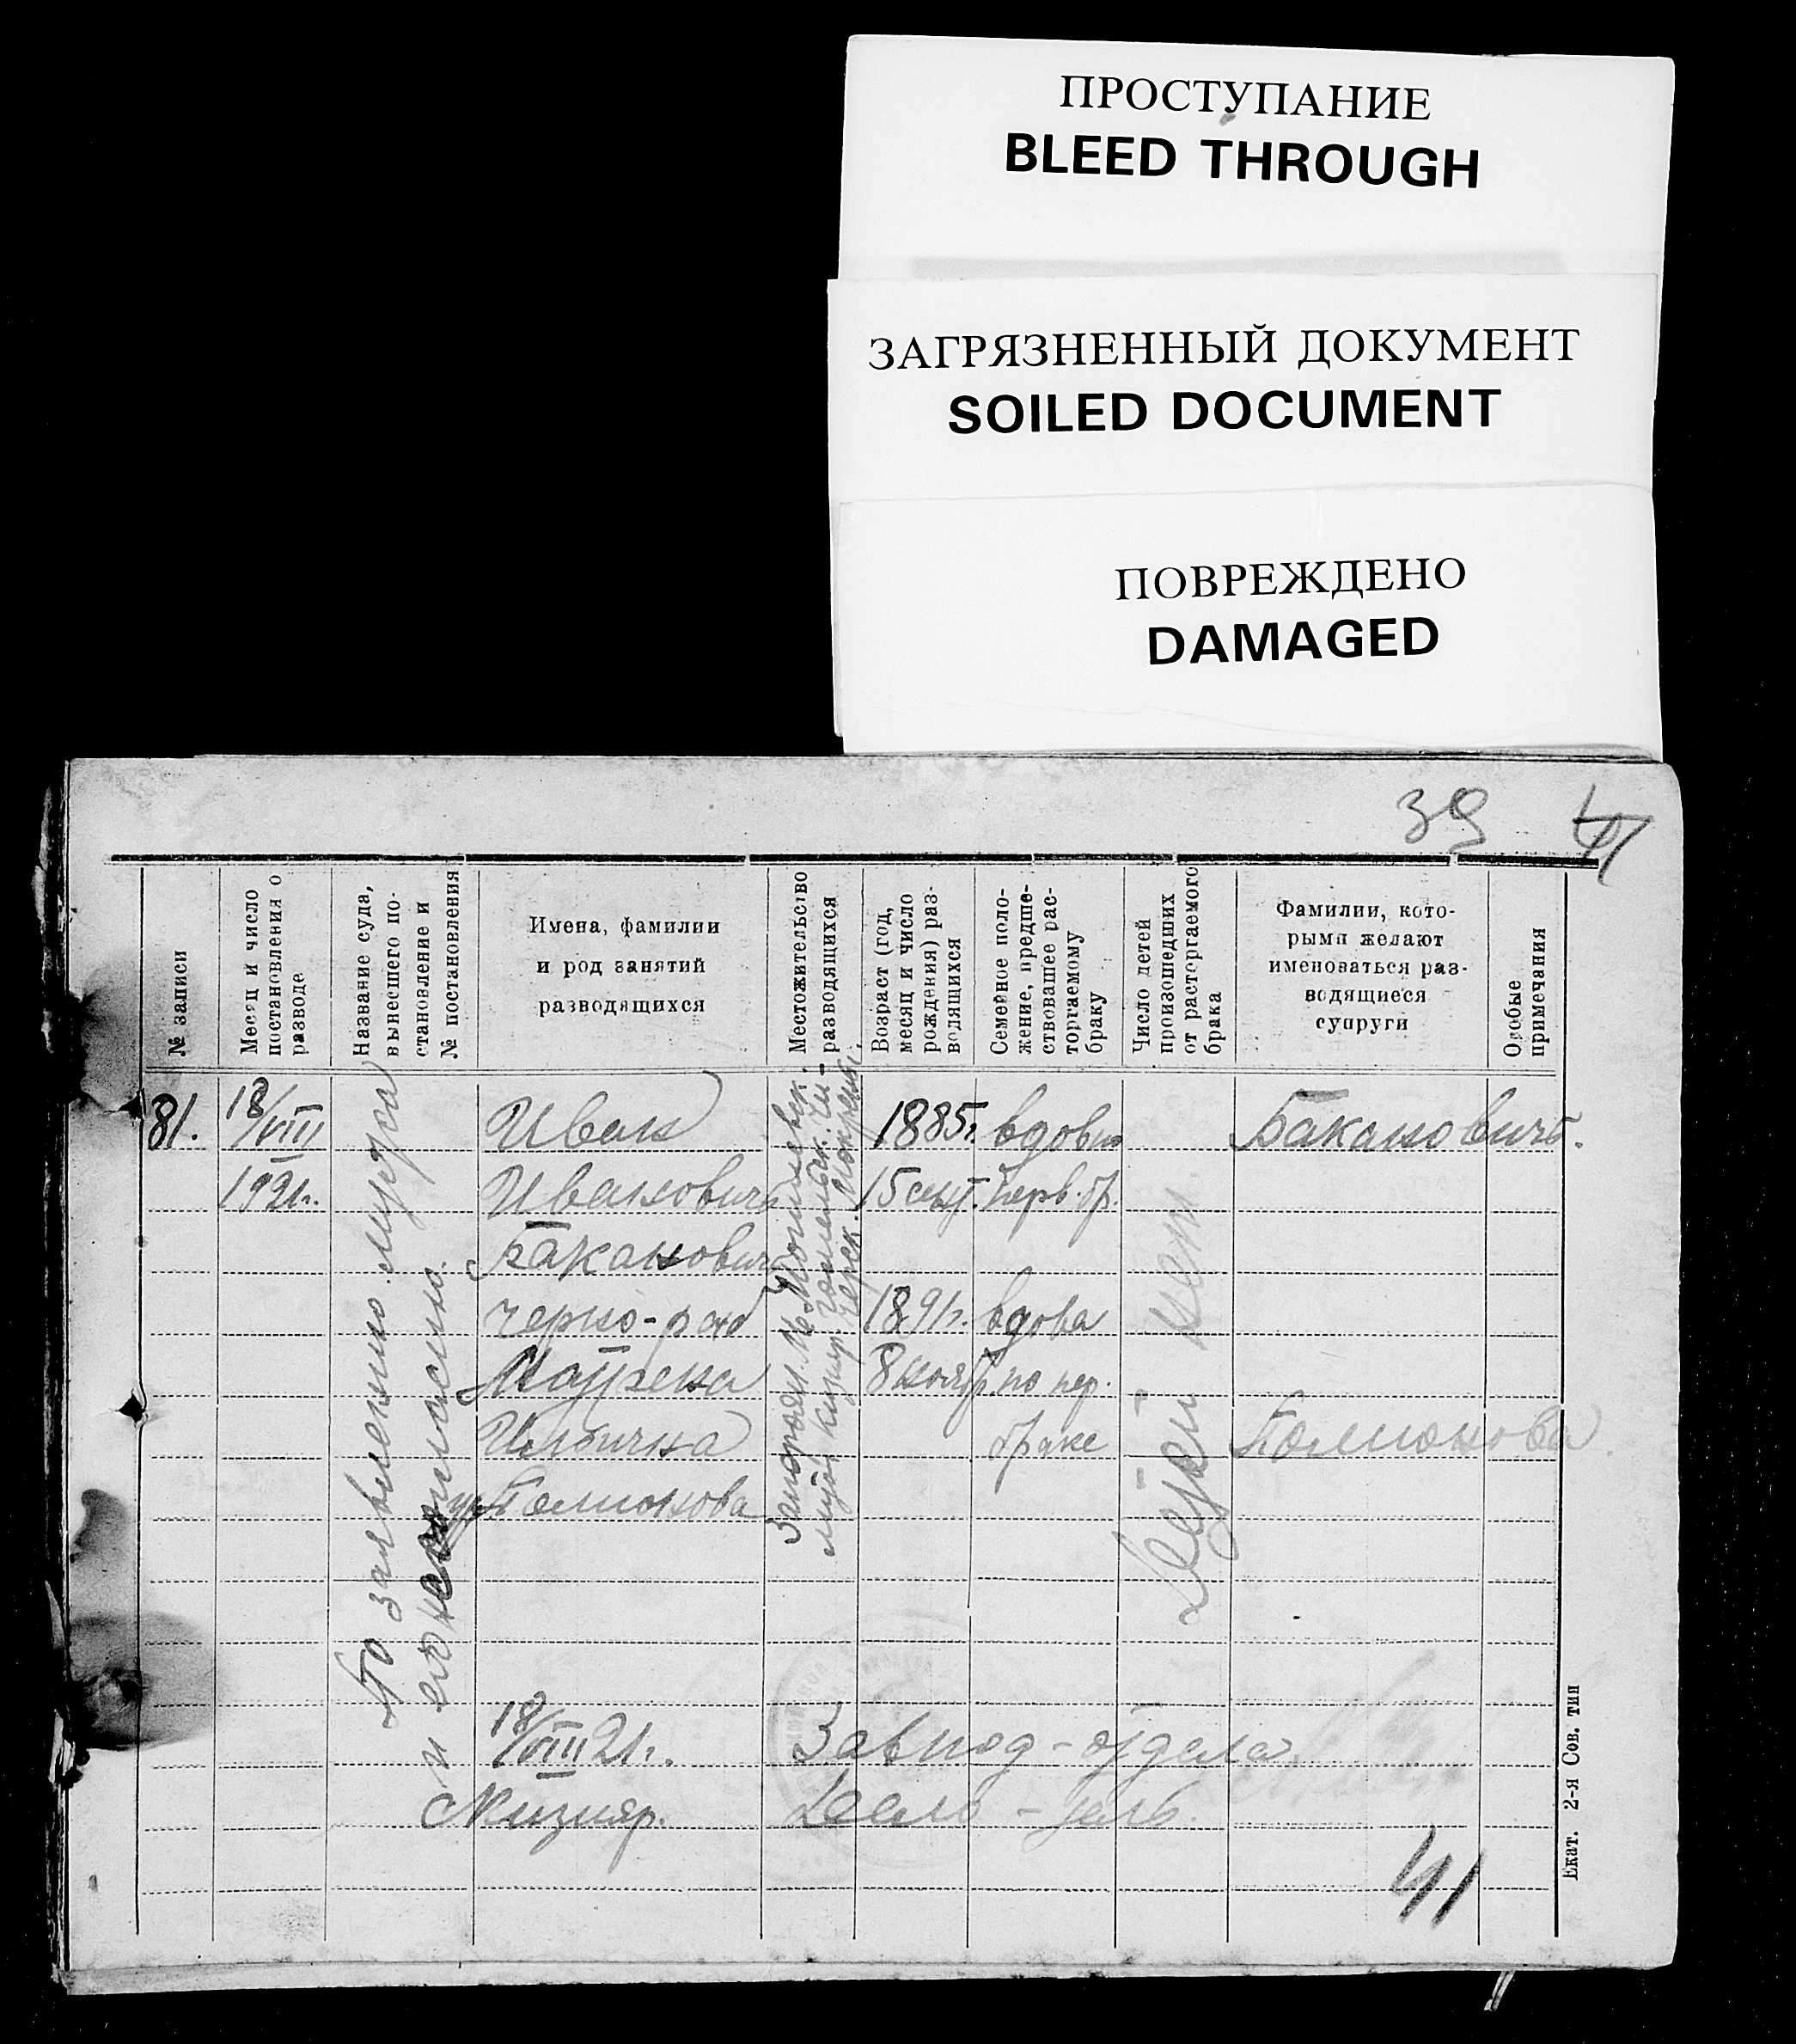 ПРОСТУПАНИЕ
BLEED THROUGH
ЗАГРЯЗНЕННЫЙ ДОКУМЕНТ
SOILED DOCUMENT
ПОВРЕЖДЕНО
DAMAGED
39 41
№ записи
Месяц и число
постановления о
разводе
Название суда,
вынесшего по-
становление и
№ постановления
Имена, фамилии
и род занятий
разводящихся
Местожительство
разводящихся
Возраст (год,
месяц и число
рождения) раз-
водящихся
Семейное поло-
жение, предше-
ствовавшее рас-
торгаемому
браку
Число детей
происшедших
от расторгаемого
брака
Фамилии, кото-
рыми желают
именоваться раз-
водящиеся
супруги
Особые
примечания
81.
18/VIII
1921г.
По заявлению мужа
и его согласию.
Иван
Иванович
Баканович
черно-раб
Ильична
1885г.
15 сент.
1891г.
8 нояб.
вдовец
перв. бр.
вдова
по пер.
браке
Детей нет
Баканович.
18/VIII 21г.
Зав под-отдела
41
Екат. 2-я Сов. тип